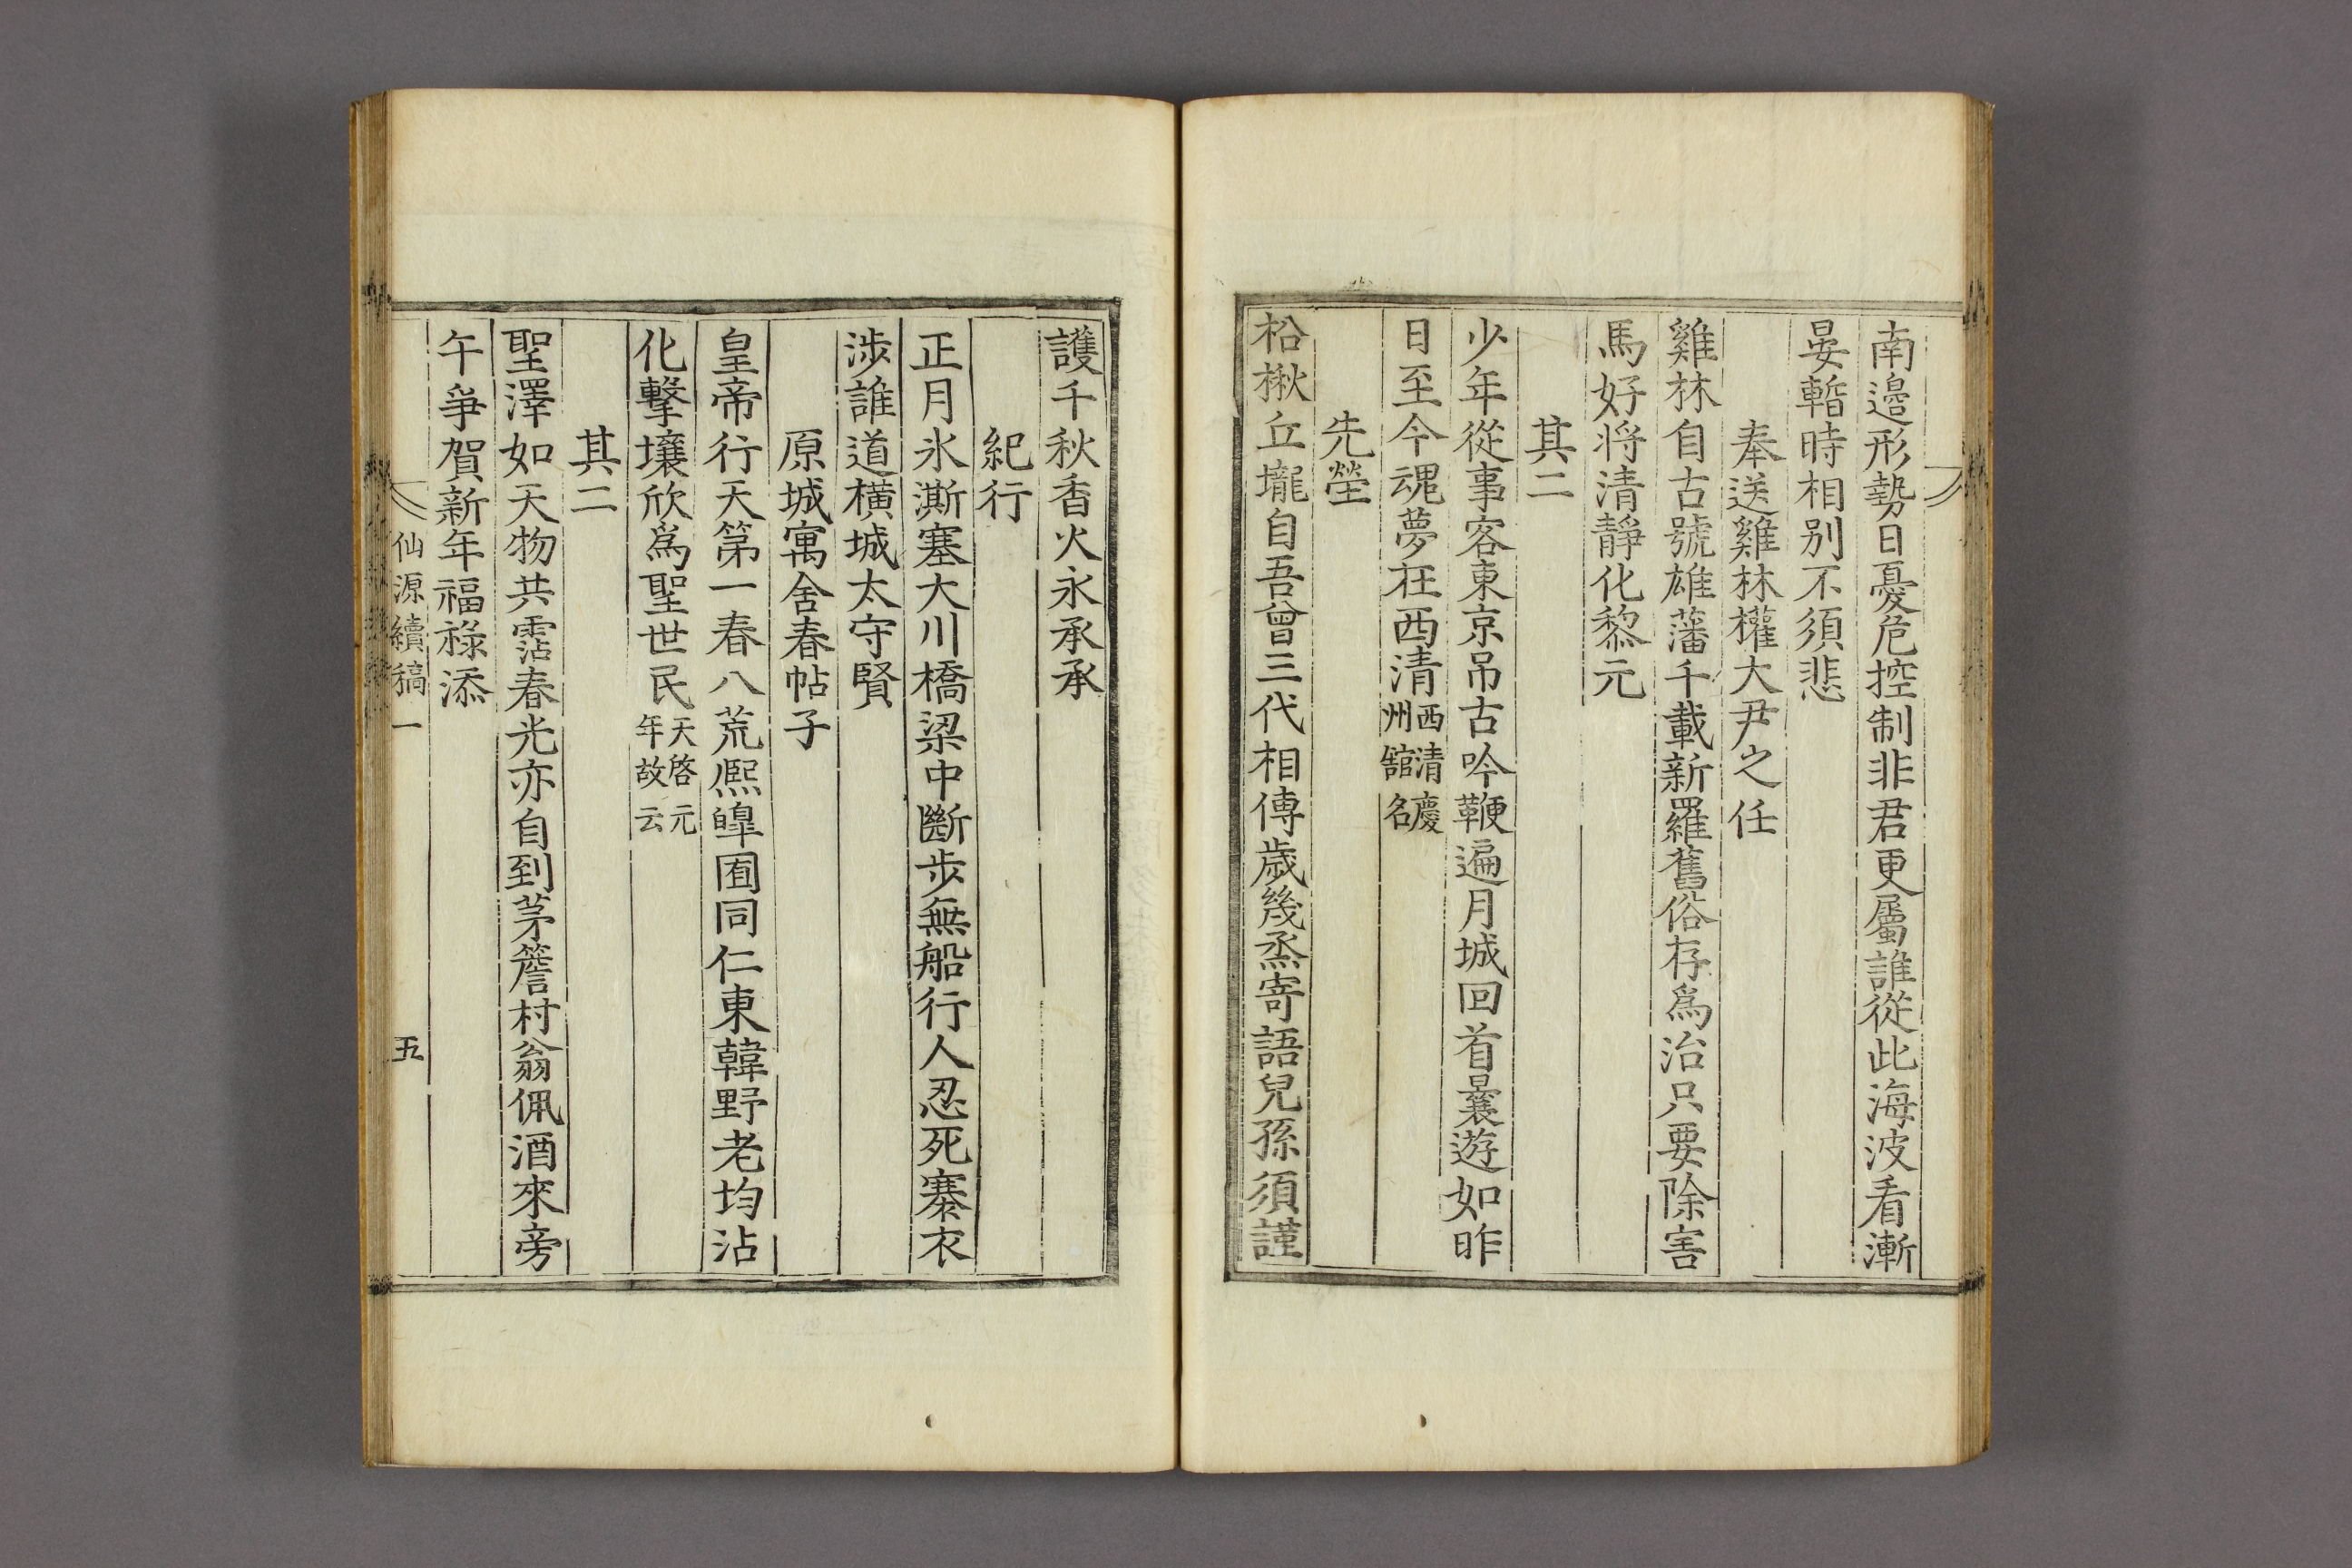 南邊形勢日憂危控制非君更屬誰從此海波看漸
晏暫時相別不須悲
奉送雞林權大尹之任
雞林自古號雄藩千載新羅舊俗存爲治只要除害
馬好將清靜化黎元
其二
少年從事客東京吊古吟鞭遍月城回首曩遊如昨
日至今魂夢在西清西清慶州舘名
先塋
松楸丘壠自吾曾三代相傳歲幾烝寄語兒孫須謹
護千秋香火永承承
紀行
正月氷澌塞大川橋梁中斷步無船行人忍死褰衣
涉誰道橫城太守賢
原城寓舍春帖子
皇帝行天第一春八荒熈皥囿同仁東韓野老均沾
化擊壤欣爲聖世民天啓元年故云
其二
聖澤如天物共霑春光亦自到茅簷村翁佩酒來旁
午爭賀新年福祿添
仙源續稿一 五